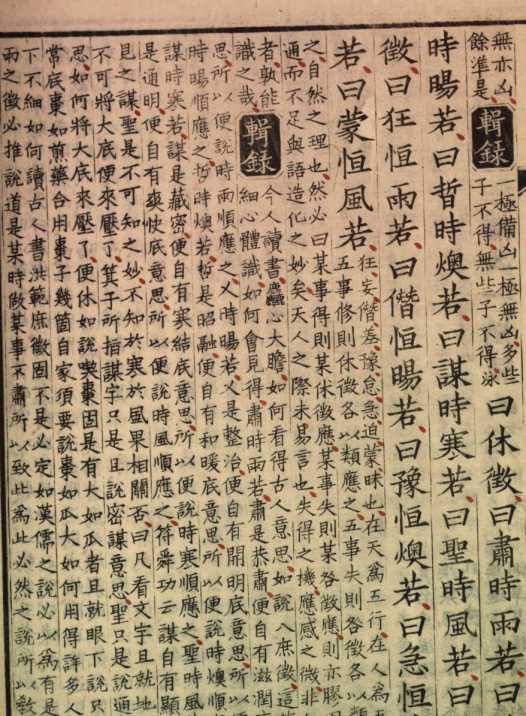 無亦凶
餘準是
輯錄
一極備凶一極無凶多些
子不得無些子不得泳
曰休徵曰肅時雨若曰
時暘若曰晢時燠若曰謀時寒若曰聖時風若曰
徵曰狂恒雨若曰僭恒暘若曰豫恒燠若曰急恒
若曰蒙恒風若
狂妄僭差豫怠急迫蒙昧也在天爲五行在人爲五
五事修則休徵各以類應之五事失則咎徵各以類
之自然之理也然必曰某事得則某休徵應某事失則某咎徵應則亦膠
通而不足與語造化之妙矣天人之際未易言也失得之機應感之微非
者孰能
識之哉
輯錄
今人讀書麤心大膽如何看得古人意思如說八庶徵這
細心體識如何會見得肅時雨若肅是恭肅便自有滋潤
思所以便說時雨順應之乂時暘若乂是整治便自有開明底意思所以便
時暘順應之晢時燠若晢是昭融便自有和暖底意思所以便說時燠順
謀時寒若謀是藏密便自有寒結底意思所以便說時寒順應之聖時風
是通明便自有爽快底意思所以便說時風順應之符舜功云謀自有顯
見之謀聖是不可知之妙不知於寒於風果相關否曰凡看文字且就地
不可將大底便來壓了箕子所指謀字只是且說密謀意思聖只是說通
思如何將大底來壓了便休如說喫棗固是有大如瓜者且就眼下說只
常底棗如煎藥合用棗子幾箇自家須要說棗如瓜大如何用得許多人
下不細如何讀古人書洪範庶徵固不是必定如漢儒之說必以爲有是
雨之徵必推說道是某時做某事不肅所以致此爲此必然之說所以教